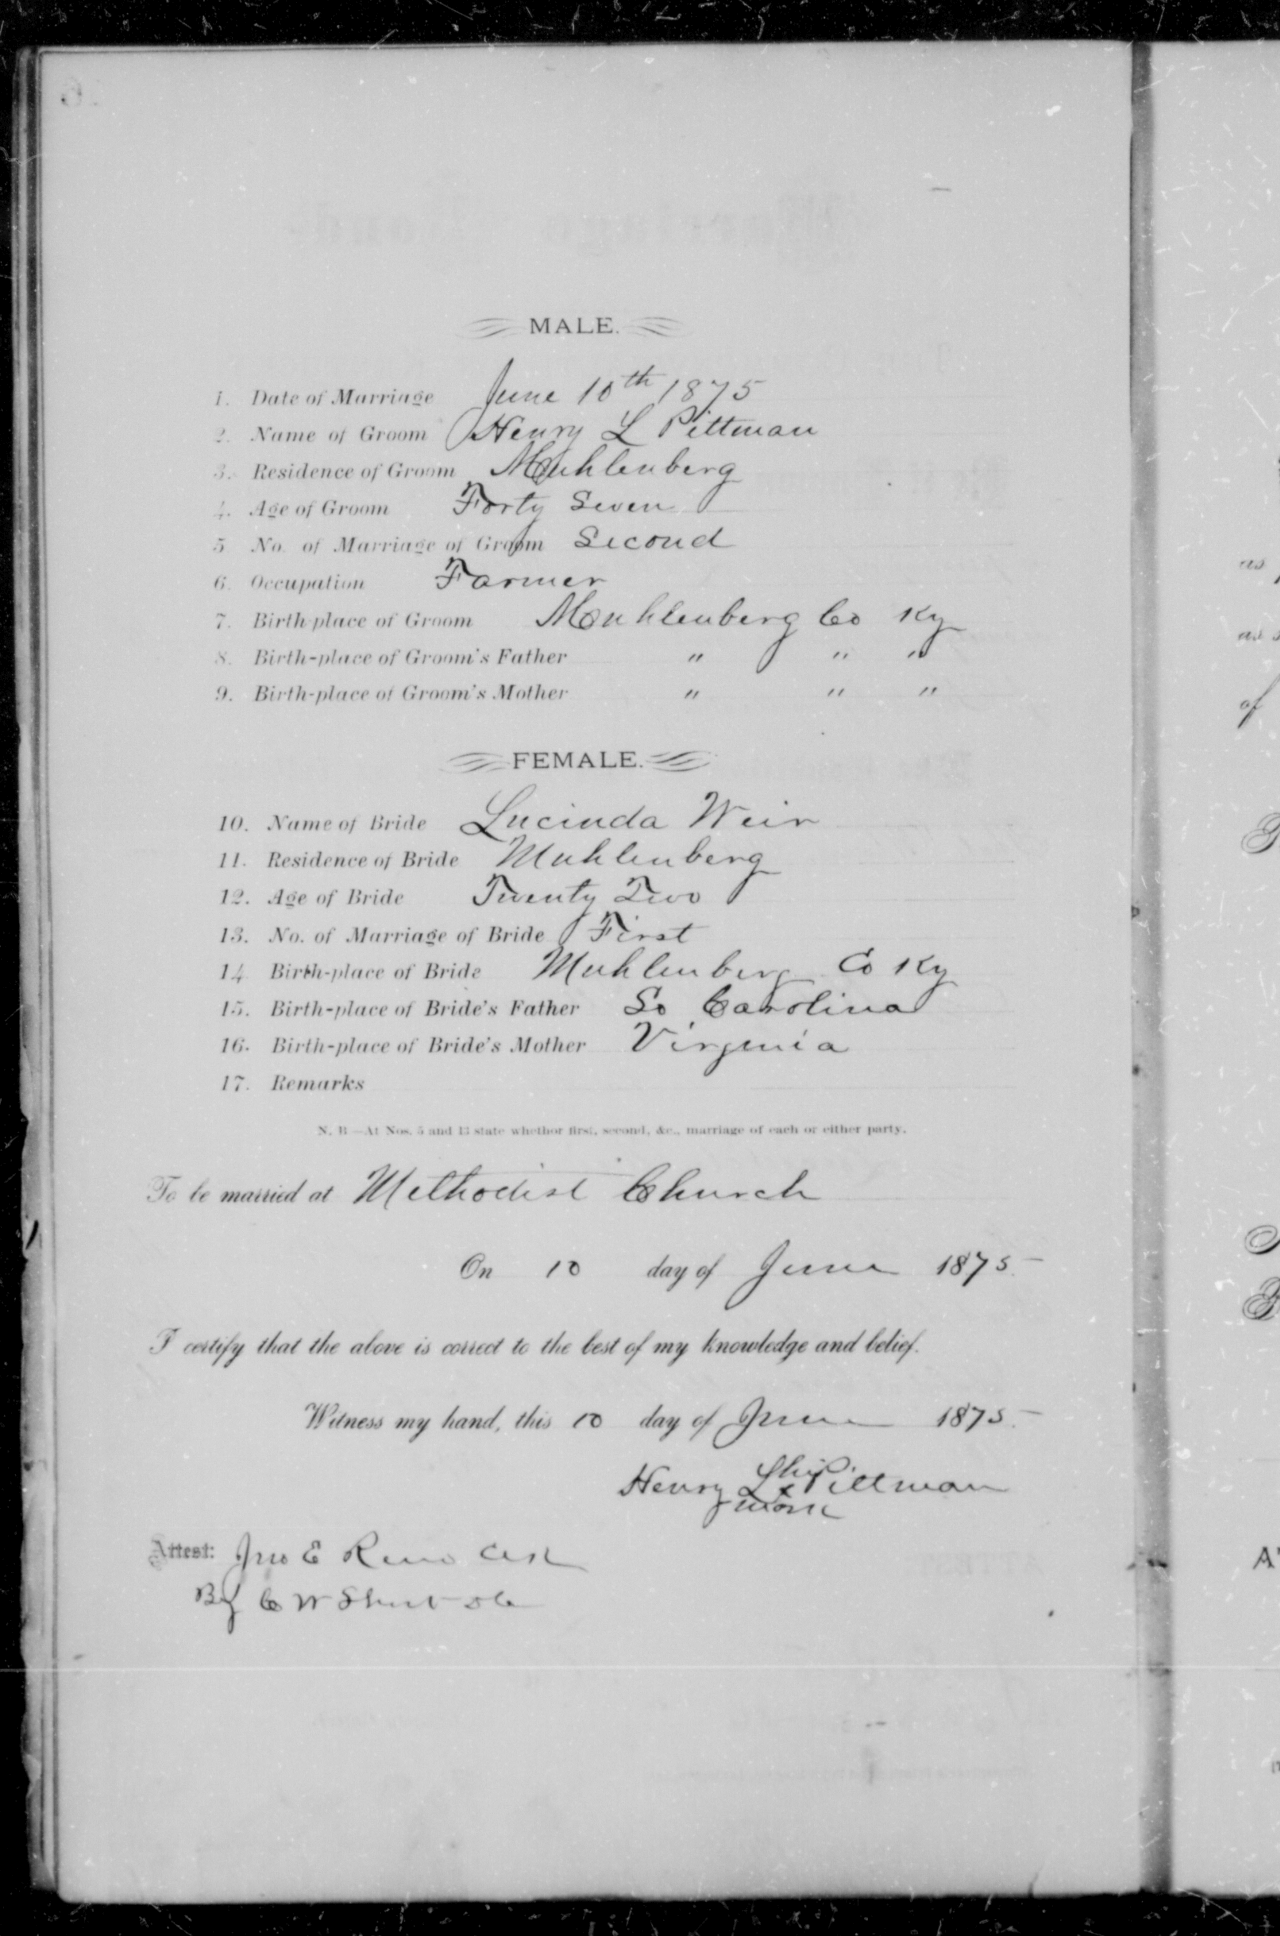 MALE.
1. Date of Marriage June 10th 1875
2. Name of Groom Henry L Pittman
3. Residence of Groom Muhlenberg
4. Age of Groom Forty Seven
5 No. of Marriage of Groom Second
6. Occupation Farmer
7. Birth-place of Groom Muhlenberg Co Ky
8. Birth-place of Groom's Father " " "
9. Birth-place of Groom's Mother " " "
FEMALE.
10. Name of Bride Lucinda Weir
11. Residence of Bride Muhlenberg
12. Age of Bride Twenty Two
13. No. of Marriage of Bride First
14 Birth-place of Bride Muhlenberg Co Ky
15. Birth-place of Bride's Father So Carolina
16. Birth-place of Bride's Mother Virginia
17. Remarks
N. B—At Nos. 5 and 13 state whether first, second, &c., marriage of each or either party.
To be married at Methodist Church
On 10 day of June 1875
I certify that the above is correct to the best of my knowledge and belief.
Witness my hand, this 10 day of June 1875
his
Henry L x Pittman
mark
Attest: Jno E Reno Clk
By C W Short DC
as
as
of